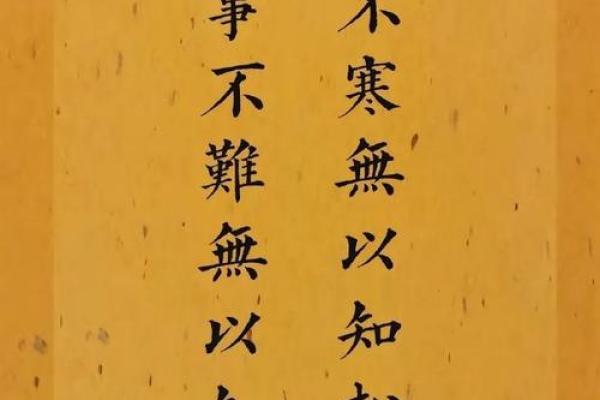 不寒無以知
事不難無以